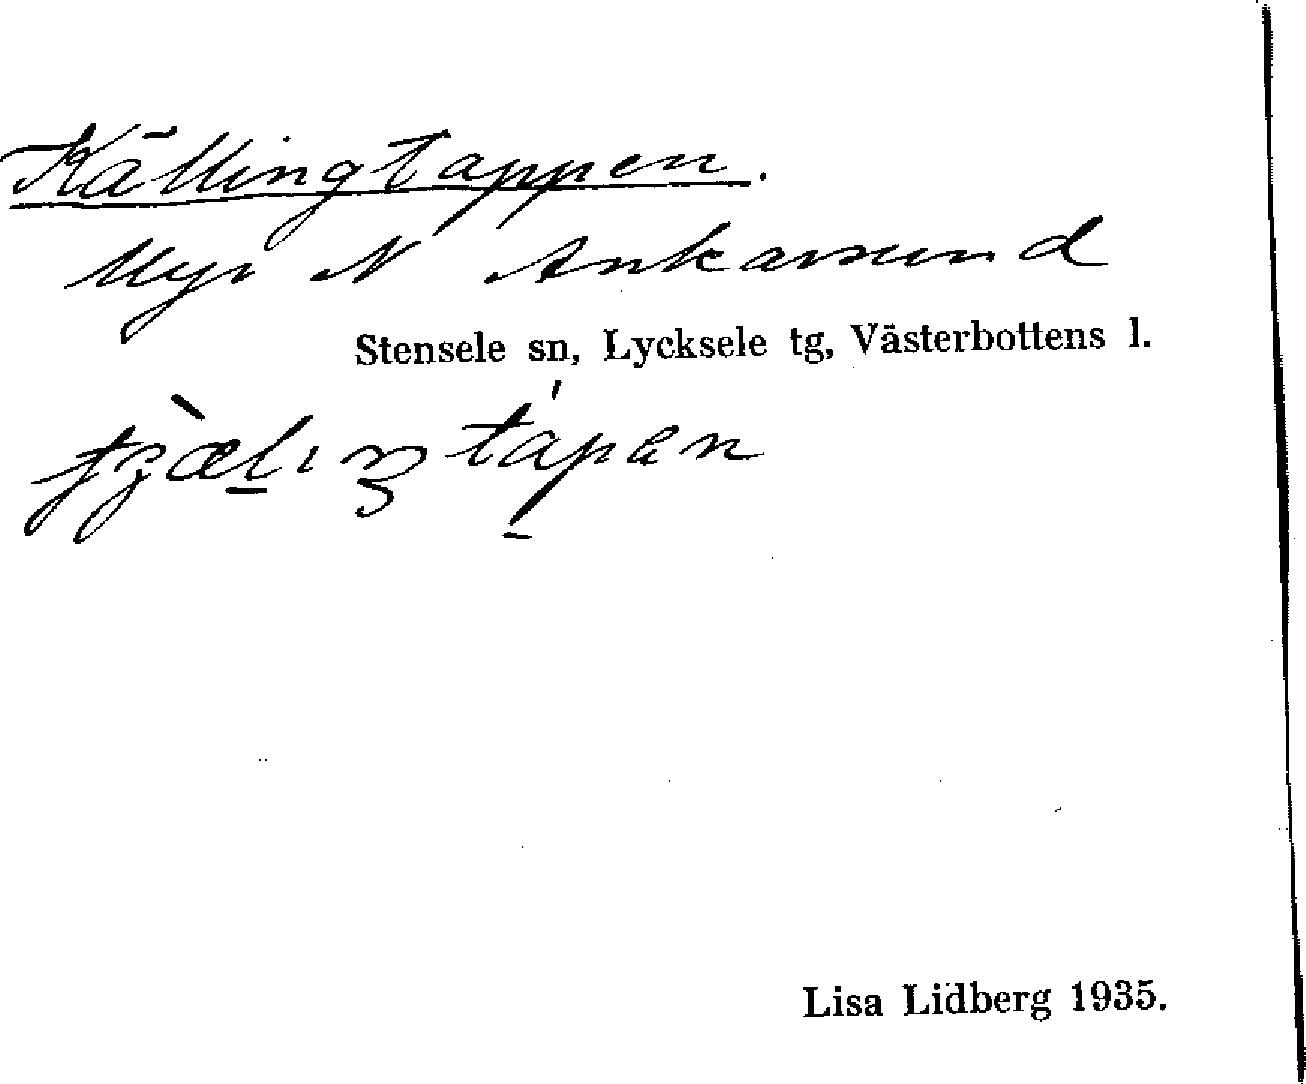 Källingtappen.
Myr N Ankarsund
Stensele sn, Lycksele tg, Västerbottens l.
Lisa Lidberg 1935.